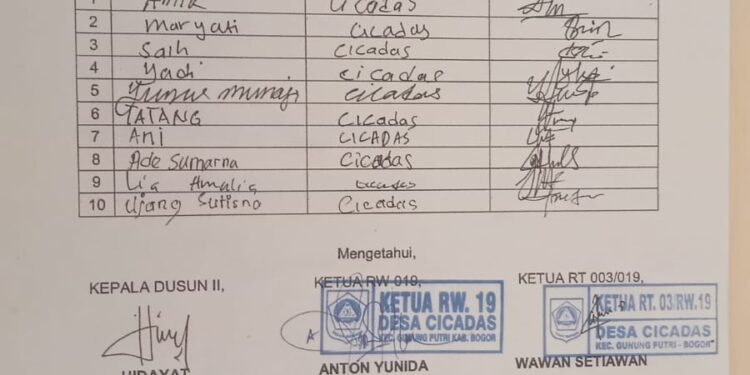 1 Cicadas
2 Maryati Cicadas
3 Saih Cicadas
4 Yadi Cicadas
5 Cicadas
6 TATANG Cicadas
7 Ani CICADAS
8 Ade Sumarna Cicadas
9 Lia Amalia cicadas
10 Ujang Sutisna Cicadas
Mengetahui,
KEPALA DUSUN II, KETUA RW 019, KETUA RT 003/019,
KETUA RW. 19
DESA CICADAS
KEC. GUNUNG PUTRI KAB. BOGOR
KETUA RT. 03/RW.19
DESA CICADAS
KEC. GUNUNG PUTRI - BOGOR
HIDAYAT ANTON YUNIDA WAWAN SETIAWAN